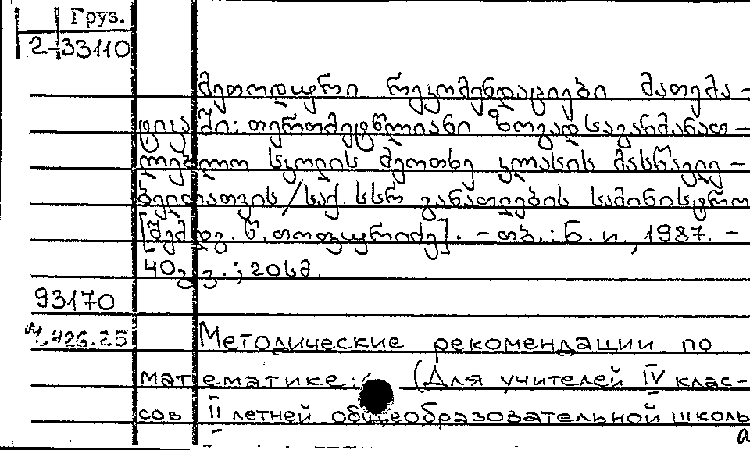 Груз.
2-33110
მეთოდური რეკომენდაციები მათემა-
ტიკაში: თერთმეტწლიანი ზოგადსაგანმანათ-
ლებლო სკოლის მეოთხე კლასის მასწავლე-
ბელთათვის / საქ. სსრ განათლების სამინისტრო
[შემდგ. ნ. თოფურიძე]. - თბ.: Б. и., 1987. -
40გვ.; 20სმ.
93170
Методические рекомендации по
математике: (Для учителей IV клас-
сов II летней общеобразовательной школы